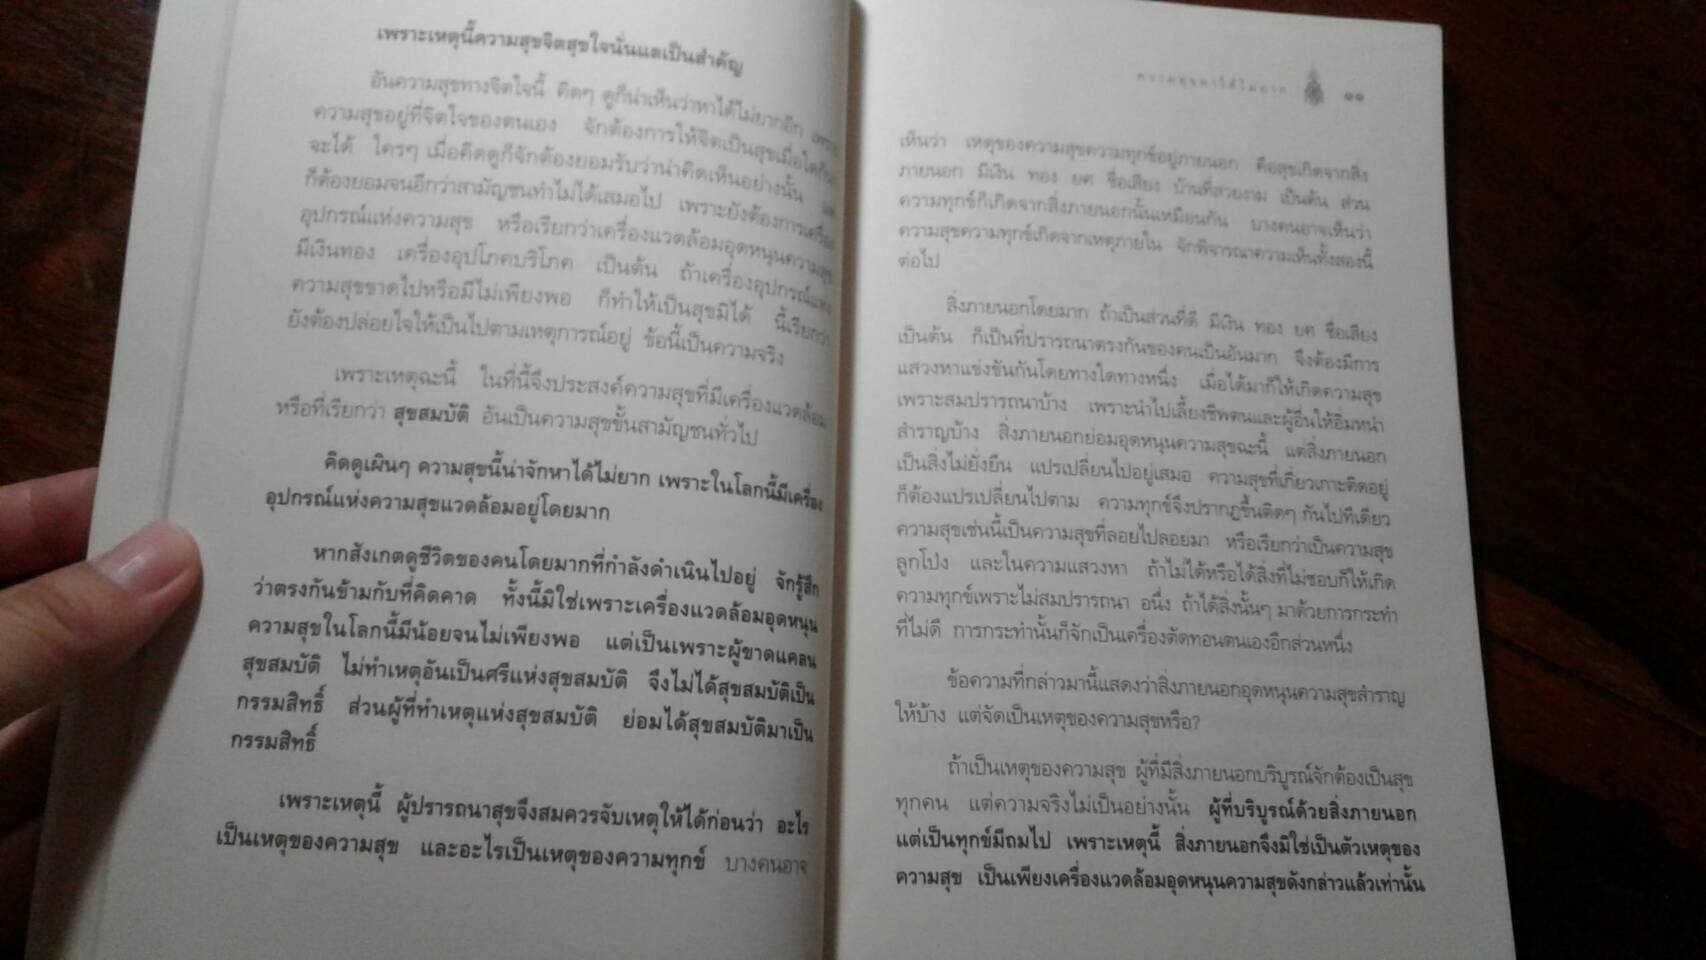 เพราะเหตุนี้ความสุขจิตสุขใจนั่นแลเป็นสำคัญ
อันความสุขทางจิตใจนี้ คิดๆ ดูก็น่าเห็นว่าหาได้ไม่ยากอีก เพราะ
ความสุขอยู่ที่จิตใจของตนเอง จักต้องการให้จิตเป็นสุขเมื่อใดก็น่า
จะได้ ใครๆ เมื่อคิดดูก็จักต้องยอมรับว่าน่าคิดเห็นอย่างนั้น แต่
ก็ต้องยอมจนอีกว่าสามัญชนทำไม่ได้เสมอไป เพราะยังต้องการเครื่อง
อุปกรณ์แห่งความสุข หรือเรียกว่าเครื่องแวดล้อมอุดหนุนความสุข
มีเงินทอง เครื่องอุปโภคบริโภค เป็นต้น ถ้าเครื่องอุปกรณ์แห่ง
ความสุขขาดไปหรือมีไม่เพียงพอ ก็ทำให้เป็นสุขมิได้ นี้เรียกว่า
ยังต้องปล่อยใจให้เป็นไปตามเหตุการณ์อยู่ ข้อนี้เป็นความจริง
เพราะเหตุฉะนี้ ในที่นี้จึงประสงค์ความสุขที่มีเครื่องแวดล้อม
หรือที่เรียกว่า สุขสมบัติ อันเป็นความสุขขั้นสามัญชนทั่วไป
คิดดูเผินๆ ความสุขนี้น่าจักหาได้ไม่ยาก เพราะในโลกนี้มีเครื่อง
อุปกรณ์แห่งความสุขแวดล้อมอยู่โดยมาก
หากสังเกตดูชีวิตของคนโดยมากที่กำลังดำเนินไปอยู่ จักรู้สึก
ว่าตรงกันข้ามกับที่คิดคาด ทั้งนี้มิใช่เพราะเครื่องแวดล้อมอุดหนุน
ความสุขในโลกนี้มีน้อยจนไม่เพียงพอ แต่เป็นเพราะผู้ขาดแคลน
สุขสมบัติ ไม่ทำเหตุอันเป็นศรีแห่งสุขสมบัติ จึงไม่ได้สุขสมบัติเป็น
กรรมสิทธิ์ ส่วนผู้ที่ทำเหตุแห่งสุขสมบัติ ย่อมได้สุขสมบัติมาเป็น
กรรมสิทธิ์
เพราะเหตุนี้ ผู้ปรารถนาสุขจึงสมควรจับเหตุให้ได้ก่อนว่า อะไร
เป็นเหตุของความสุข และอะไรเป็นเหตุของความทุกข์ บางคนอาจ
ความสุขหาได้ไม่ยาก ๑๑
เห็นว่า เหตุของความสุขความทุกข์อยู่ภายนอก คือสุขเกิดจากสิ่ง
ภายนอก มีเงิน ทอง ยศ ชื่อเสียง บ้านที่สวยงาม เป็นต้น ส่วน
ความทุกข์ก็เกิดจากสิ่งภายนอกนั้นเหมือนกัน บางคนอาจเห็นว่า
ความสุขความทุกข์เกิดจากเหตุภายใน จักพิจารณาความเห็นทั้งสองนี้
ต่อไป
สิ่งภายนอกโดยมาก ถ้าเป็นส่วนที่ดี มีเงิน ทอง ยศ ชื่อเสียง
เป็นต้น ก็เป็นที่ปรารถนาตรงกันของคนเป็นอันมาก จึงต้องมีการ
แสวงหาแข่งขันกันโดยทางใดทางหนึ่ง เมื่อได้มาก็ให้เกิดความสุข
เพราะสมปรารถนาบ้าง เพราะนำไปเลี้ยงชีพตนและผู้อื่นให้อิ่มหนำ
สำราญบ้าง สิ่งภายนอกย่อมอุดหนุนความสุขฉะนี้ แต่สิ่งภายนอก
เป็นสิ่งไม่ยั่งยืน แปรเปลี่ยนไปอยู่เสมอ ความสุขที่เกี่ยวเกาะติดอยู่
ก็ต้องแปรเปลี่ยนไปตาม ความทุกข์จึงปรากฏขึ้นติดๆ กันไปทีเดียว
ความสุขเช่นนี้เป็นความสุขที่ลอยไปลอยมา หรือเรียกว่าเป็นความสุข
ลูกโป่ง และในความแสวงหา ถ้าไม่ได้หรือได้สิ่งที่ไม่ชอบก็ให้เกิด
ความทุกข์เพราะไม่สมปรารถนา อนึ่ง ถ้าได้สิ่งนั้นๆ มาด้วยการกระทำ
ที่ไม่ดี การกระทำนั้นก็จักเป็นเครื่องตัดทอนตนเองอีกส่วนหนึ่ง
ข้อความที่กล่าวมานี้แสดงว่าสิ่งภายนอกอุดหนุนความสุขสำราญ
ให้บ้าง แต่จัดเป็นเหตุของความสุขหรือ?
ถ้าเป็นเหตุของความสุข ผู้ที่มีสิ่งภายนอกบริบูรณ์จักต้องเป็นสุข
ทุกคน แต่ความจริงไม่เป็นอย่างนั้น ผู้ที่บริบูรณ์ด้วยสิ่งภายนอก
แต่เป็นทุกข์มีถมไป เพราะเหตุนี้ สิ่งภายนอกจึงมิใช่เป็นตัวเหตุของ
ความสุข เป็นเพียงเครื่องแวดล้อมอุดหนุนความสุขดังกล่าวแล้วเท่านั้น